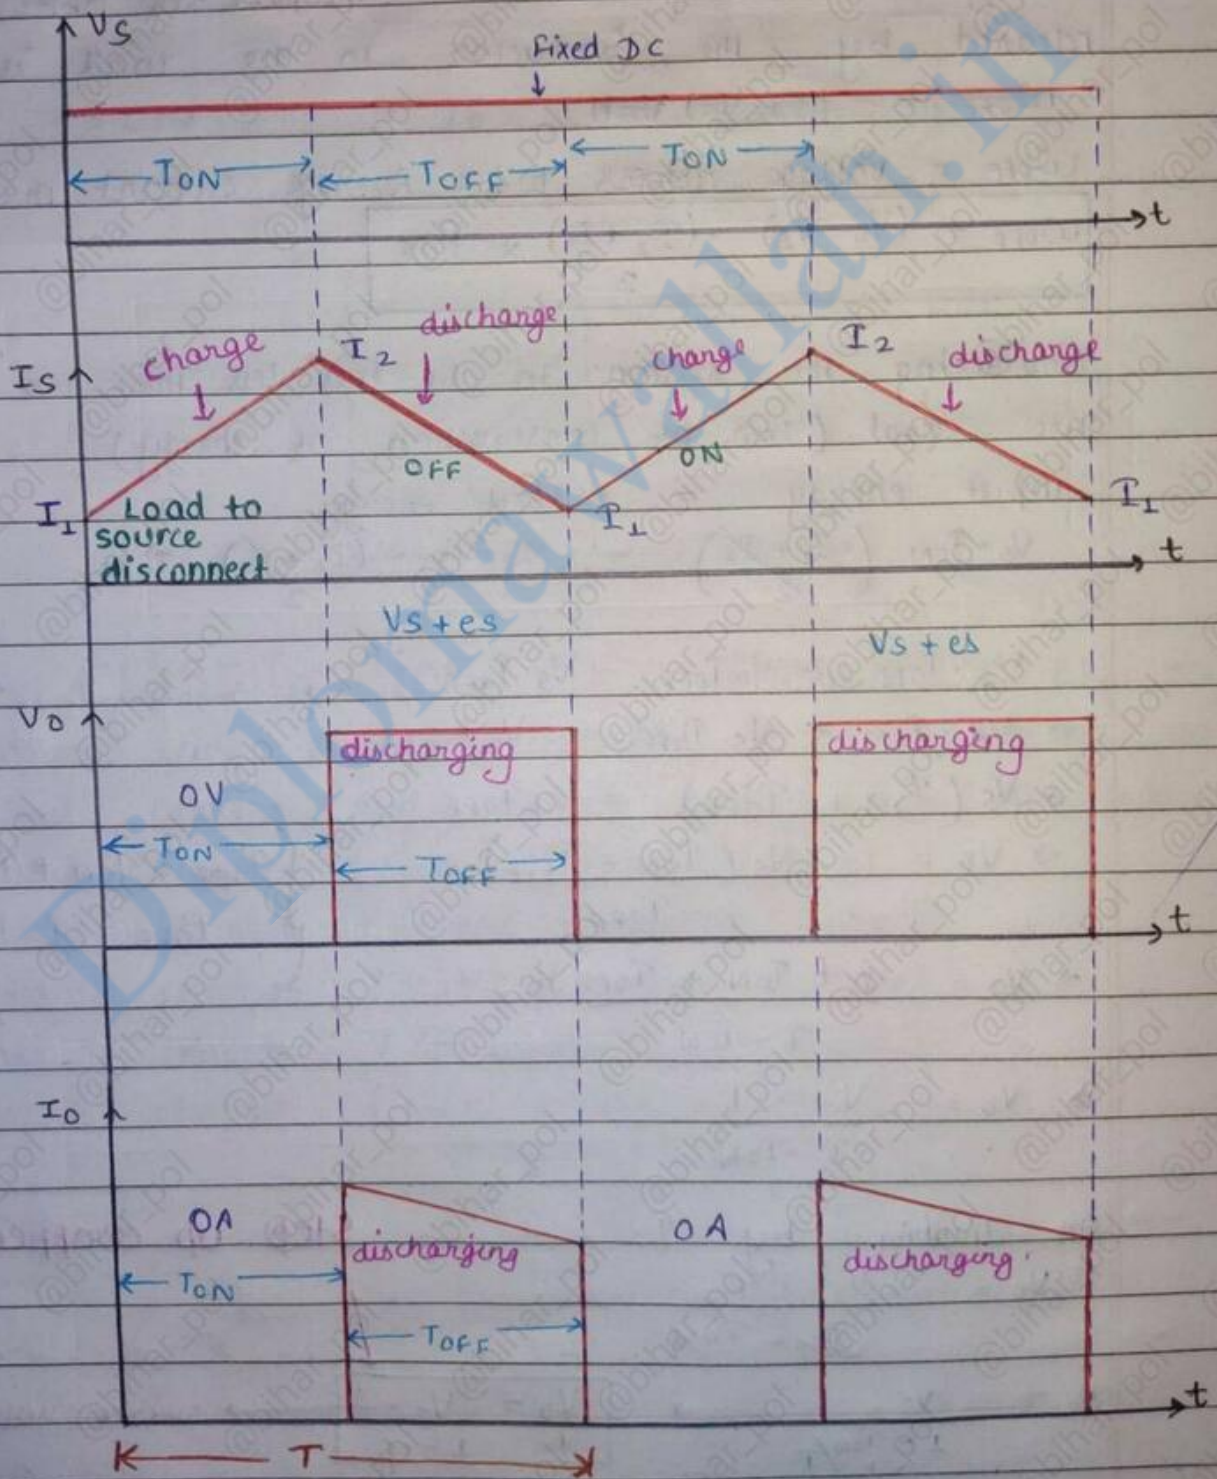 Vs
Fixed DC
TON
TOFF
TON
t
Is
charge
I2
discharge
charge
I2
discharge
OFF
ON
I1
Load to
source
disconnect
I1
I1
t
Vs + es
Vs + es
Vo
discharging
discharging
OV
TON
TOFF
t
Io
OA
discharging
OA
discharging
TON
TOFF
t
T
Diplomawallah.in
@bihar_pol